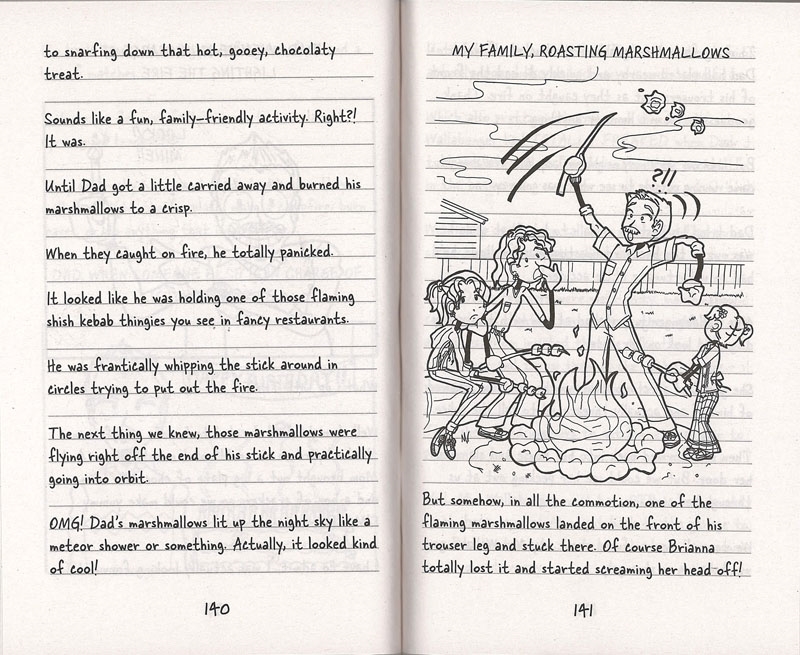 to snarfing down that hot, gooey, chocolaty
treat.
Sounds like a fun, family-friendly activity. Right?!
It was.
Until Dad got a little carried away and burned his
marshmallows to a crisp.
When they caught on fire, he totally panicked.
It looked like he was holding one of those flaming
shish kebab thingies you see in fancy restaurants.
He was frantically whipping the stick around in
circles trying to put out the fire.
The next thing we knew, those marshmallows were
flying right off the end of his stick and practically
going into orbit.
OMG! Dad's marshmallows lit up the night sky like a
meteor shower or something. Actually, it looked kind
of cool!
140
MY FAMILY, ROASTING MARSHMALLOWS
?!!
But somehow, in all the commotion, one of the
flaming marshmallows landed on the front of his
trouser leg and stuck there. Of course Brianna
totally lost it and started screaming her head off!
141